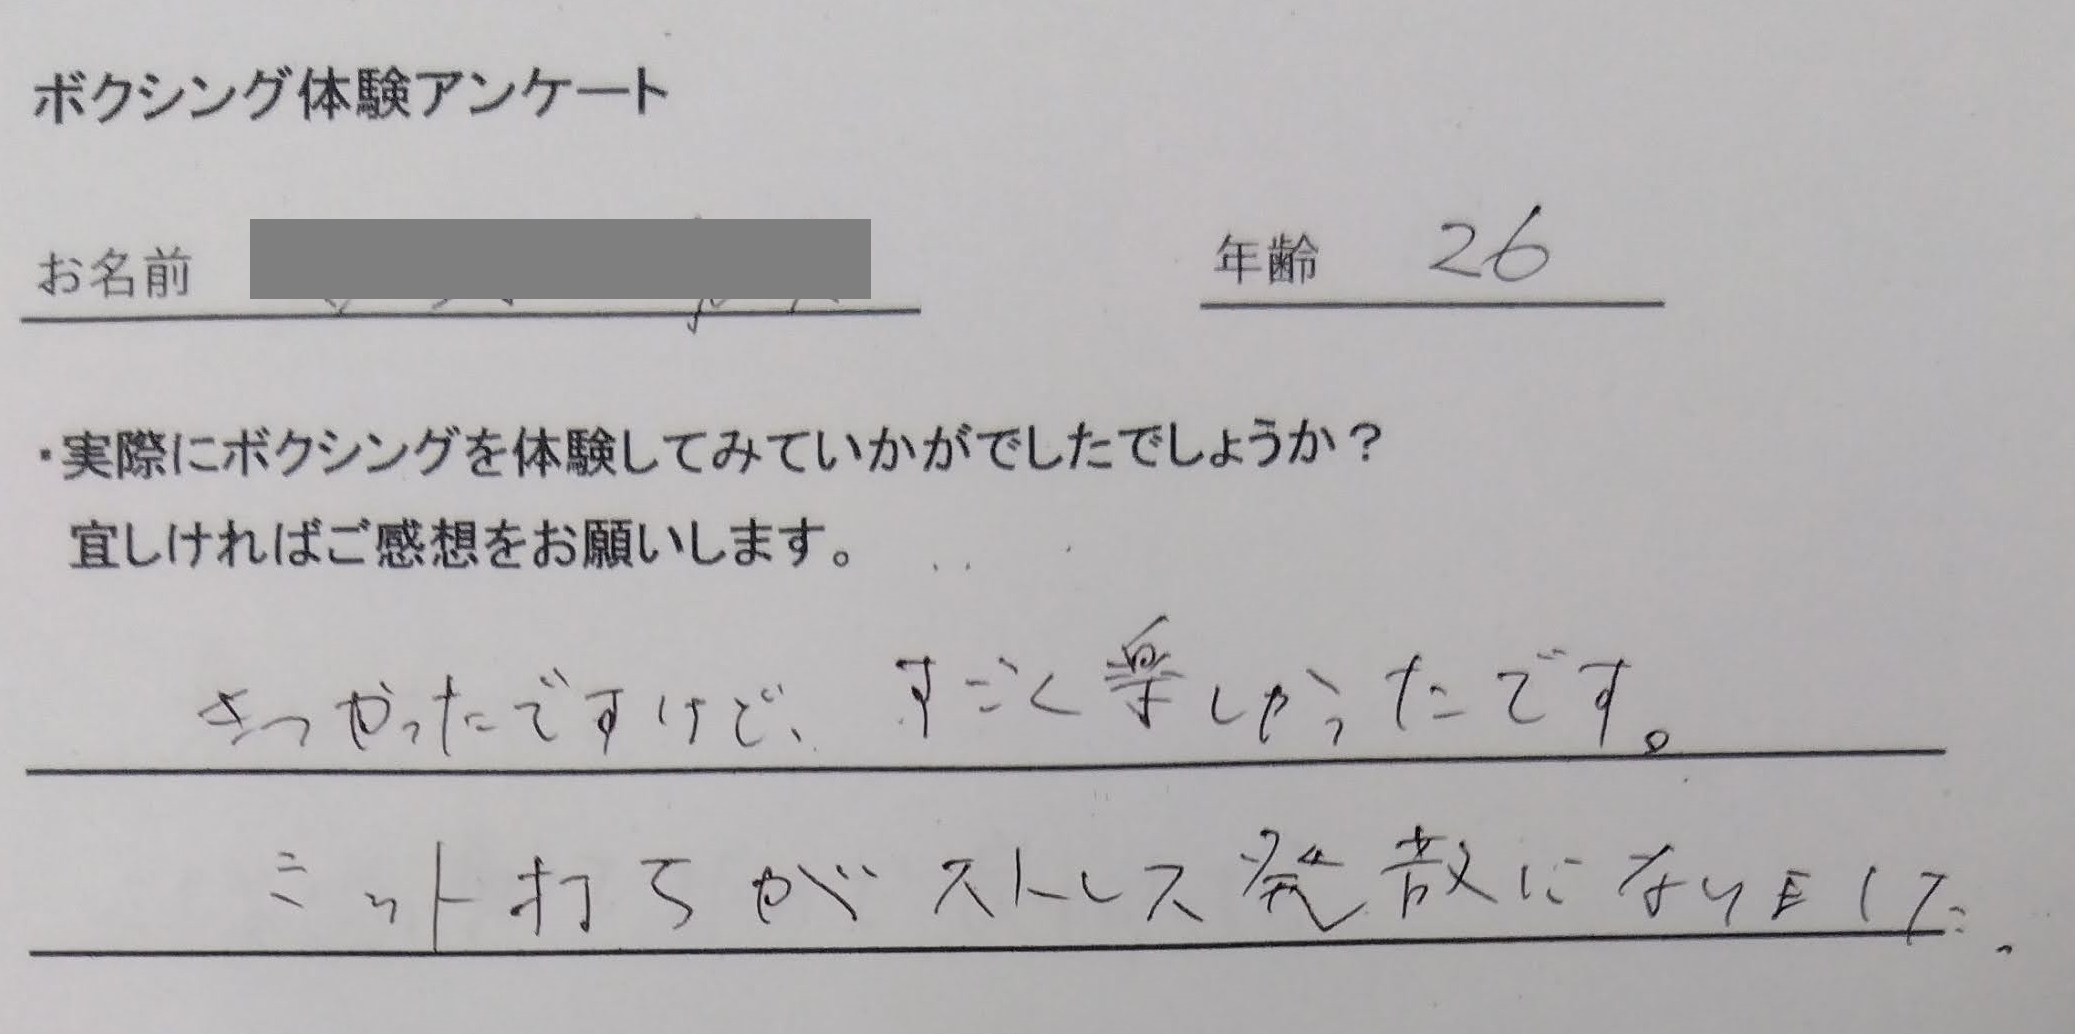 ボクシング体験アンケート
お名前 年齢 26
・実際にボクシングを体験してみていかがでしたでしょうか？
宜しければご感想をお願いします。
きつかったですけど、すごく楽しかったです。
ミット打ちがストレス発散になりました.